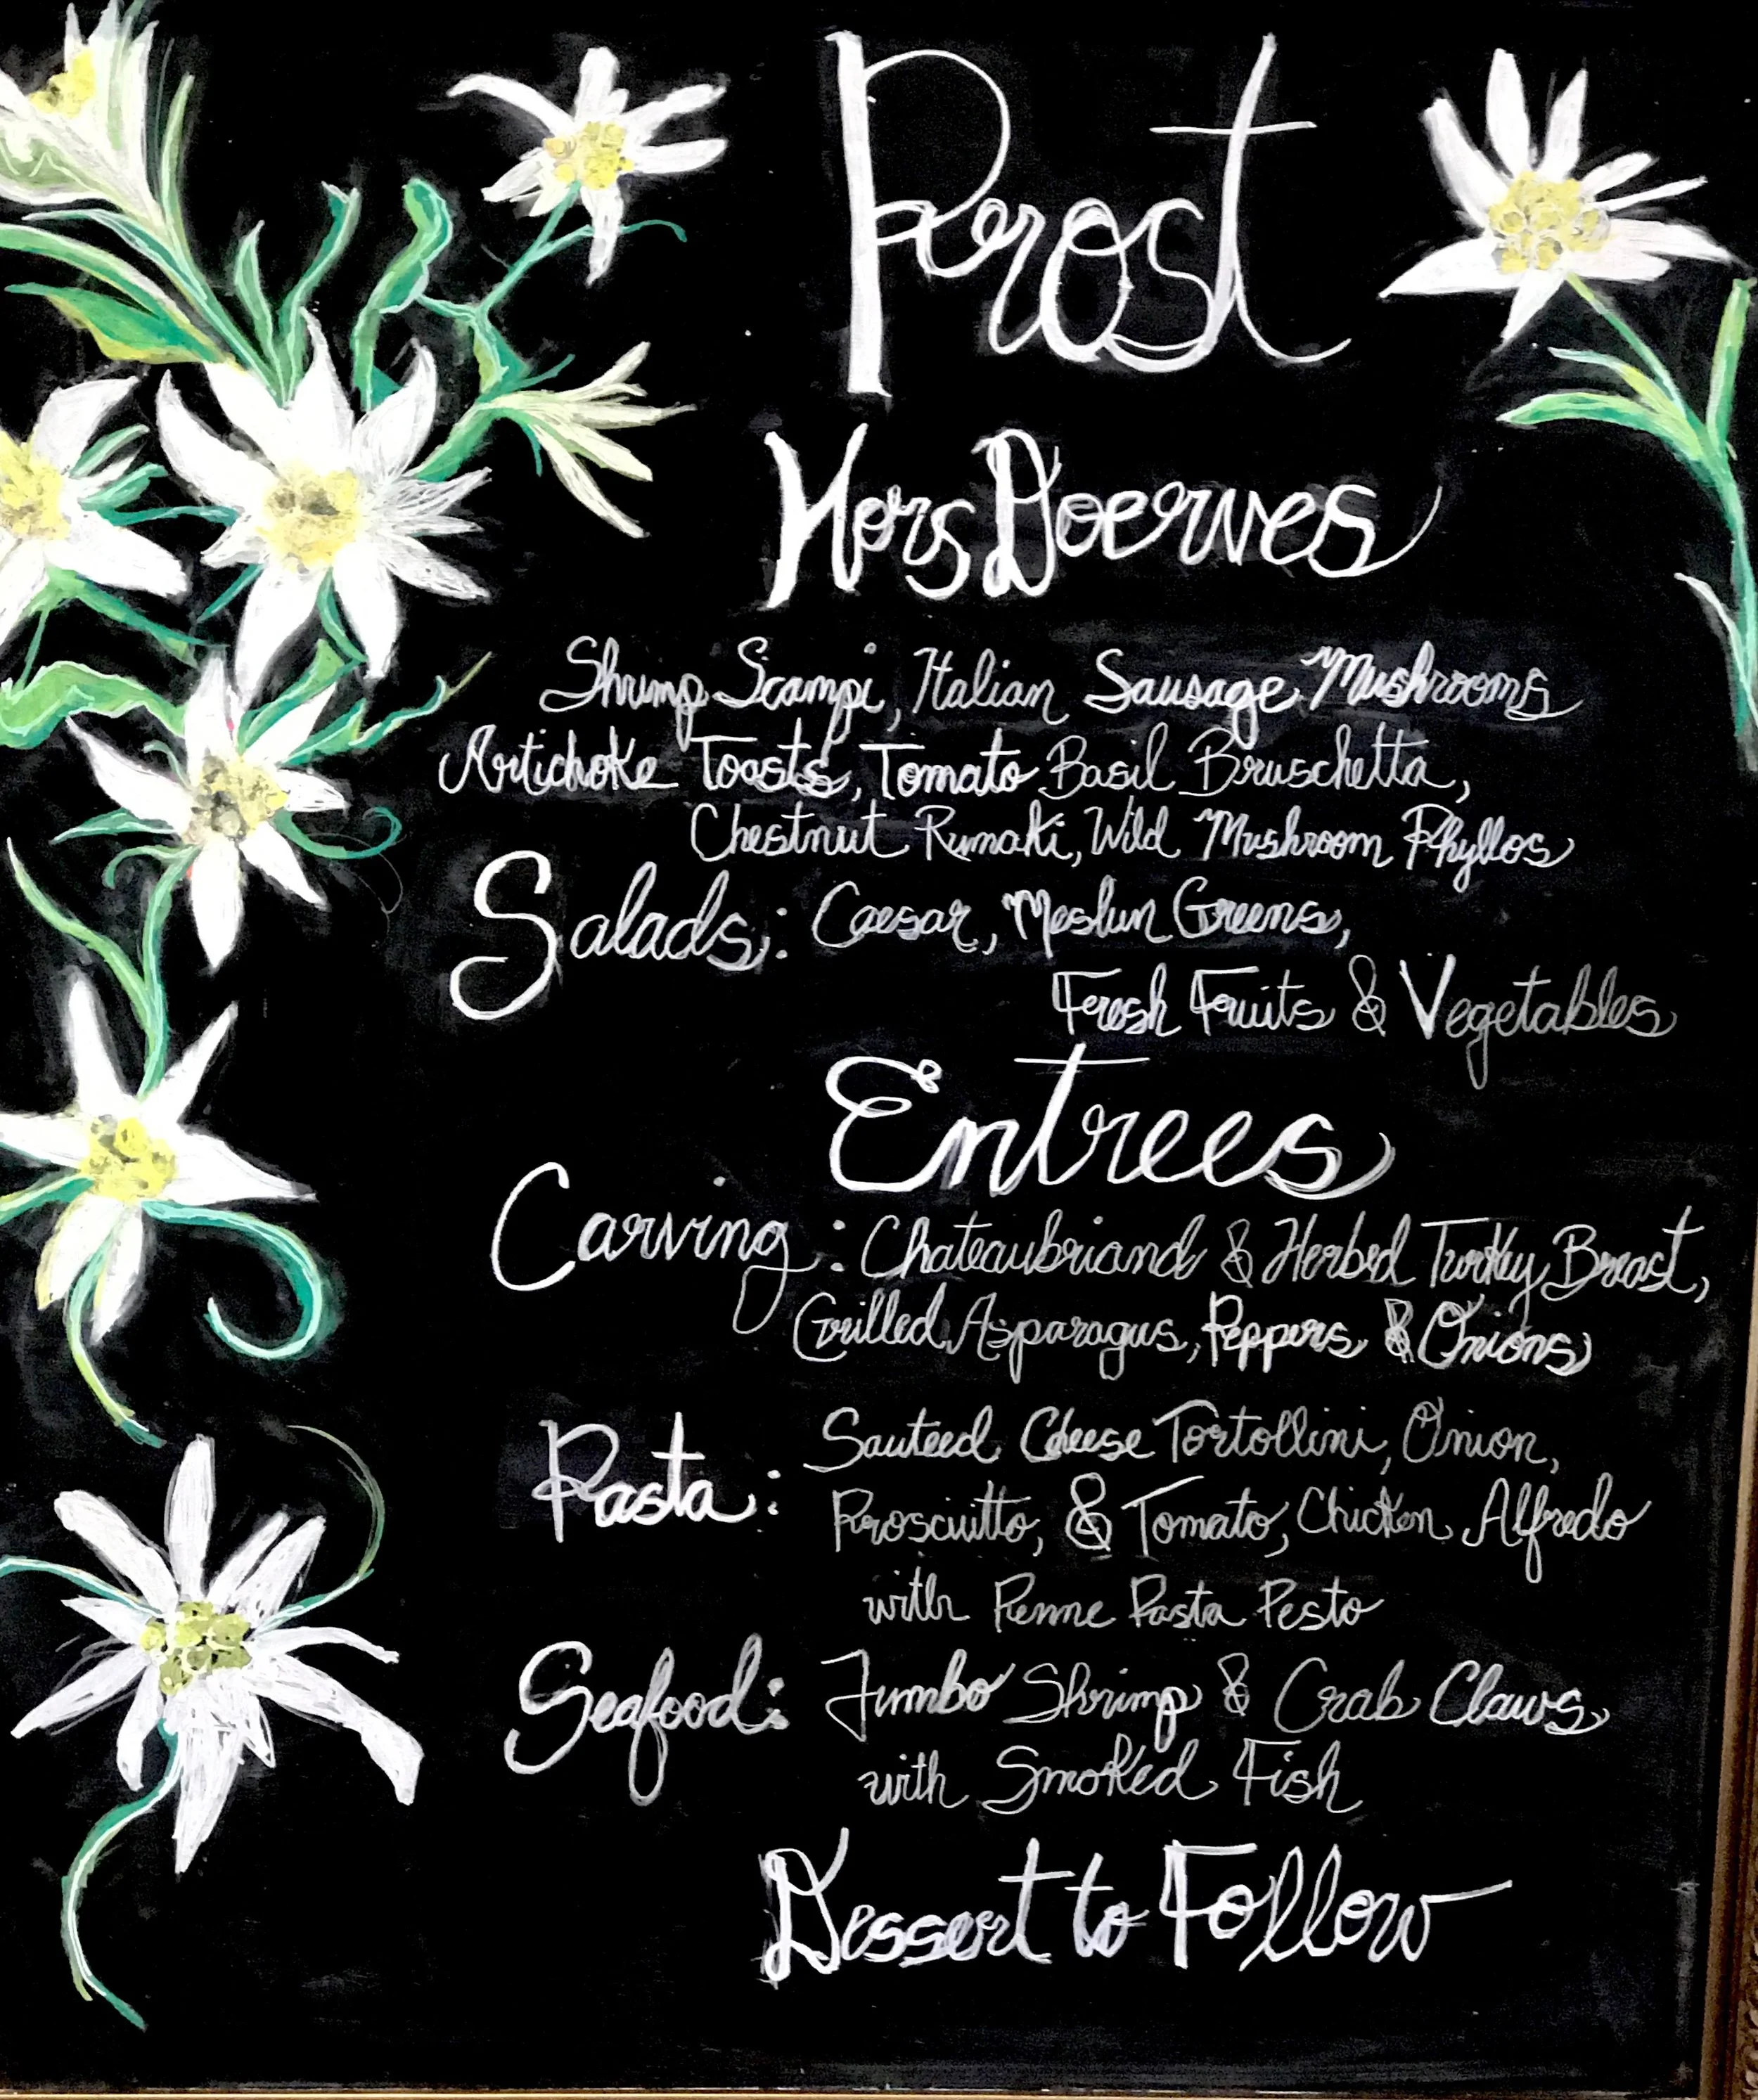 Prost
Hors Doerves
Shrimp Scampi, Italian Sausage Mushrooms
Artichoke Toasts, Tomato Basil Bruschetta,
Chestnut Rumaki, Wild Mushroom Phyllos
Salads: Caesar, Meslun Greens,
Fresh Fruits & Vegetables
Entrees
Carving: Chateaubriand & Herbed Turkey Breast,
Grilled Asparagus, Peppers & Onions
Sauteed Cheese Tortollini, Onion,
Pasta: Prosciutto, & Tomato, Chicken Alfredo
with Penne Pasta Pesto
Seafood: Jumbo Shrimp & Crab Claws
with Smoked Fish
Dessert to Follow